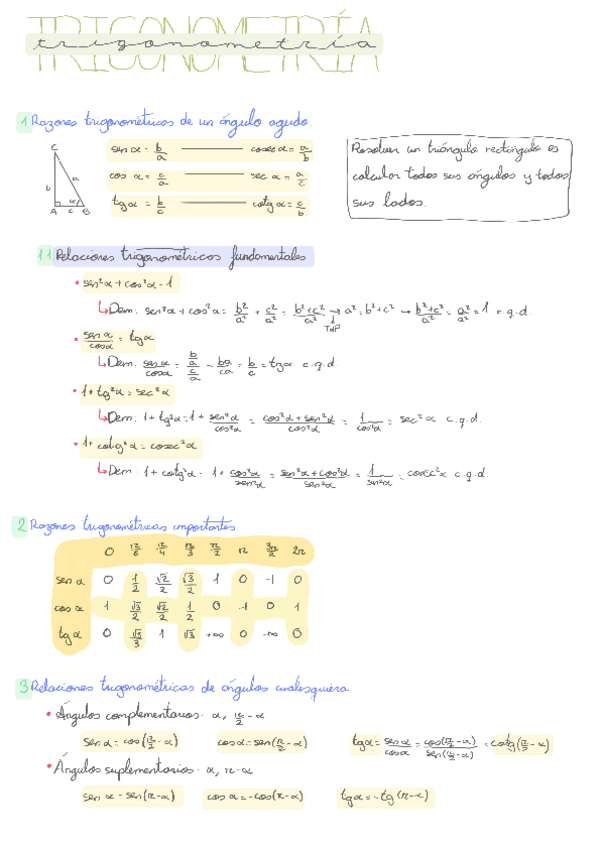 TRIGONOMETRÍA
trigonometría
1 Razones trigonométricas de un ángulo agudo.
C
b a
α
A c B
sen α = b/a ——— cosec α = a/b
cos α = c/a ——— sec α = a/c
tg α = b/c ——— cotg α = c/b
Resolver un triángulo rectángulo es
calcular todos sus ángulos y todos
sus lados.
1.1 Relaciones trigonométricas fundamentales
• sen²α + cos²α = 1
↳ Dem: sen²α + cos²α = b²/a² + c²/a² = (b²+c²)/a² → a² = b²+c² → (b²+c²)/a² = a²/a² = 1 c.q.d.
TdP
• sen α/cos α = tg α
↳ Dem: sen α/cos α = (b/a)/(c/a) = ba/ca = b/c = tg α c.q.d.
• 1 + tg²α = sec²α
↳ Dem: 1 + tg²α = 1 + sen²α/cos²α = (cos²α + sen²α)/cos²α = 1/cos²α = sec²α c.q.d.
• 1 + cotg²α = cosec²α
↳ Dem: 1 + cotg²α = 1 + cos²α/sen²α = (sen²α + cos²α)/sen²α = 1/sen²α = cosec²α c.q.d.
2 Razones trigonométricas importantes
0 π/6 π/4 π/3 π/2 π 3π/2 2π
sen α 0 1/2 √2/2 √3/2 1 0 -1 0
cos α 1 √3/2 √2/2 1/2 0 -1 0 1
tg α 0 √3/3 1 √3 +∞ 0 -∞ 0
3 Relaciones trigonométricas de ángulos cualesquiera
• Ángulos complementarios: α, π/2 - α
sen α = cos(π/2 - α) cos α = sen(π/2 - α) tg α = sen α/cos α = cos(π/2 - α)/sen(π/2 - α) = cotg(π/2 - α)
• Ángulos suplementarios: α, π - α
sen α = sen(π - α) cos α = -cos(π - α) tg α = -tg(π - α)